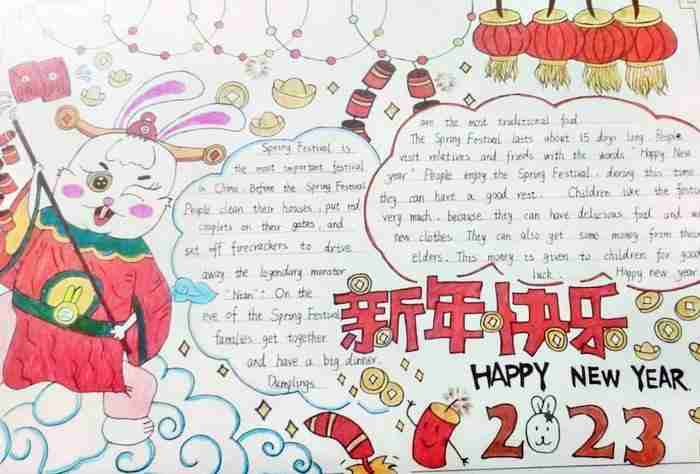 Spring Festival is
the most important festival
in China. Before the Spring Festival
People clean their houses, put red
couplets on their gates, and
set off firecrackers to drive
away the legendary monster
"Nian". On the
eve of the Spring Festival
families get together
and have a big dinner.
Dumplings
are the most traditional food
The Spring Festival lasts about 15 days long. People
visit relatives and friends with the words "Happy New
year" People enjoy the Spring Festival, during this time
they can have a good rest. Children like the festival
very much, because they can have delicious food and
new clothes. They can also get some money from their
elders. This money is given to children for good
luck. Happy new year
新年快乐
HAPPY NEW YEAR.
2023